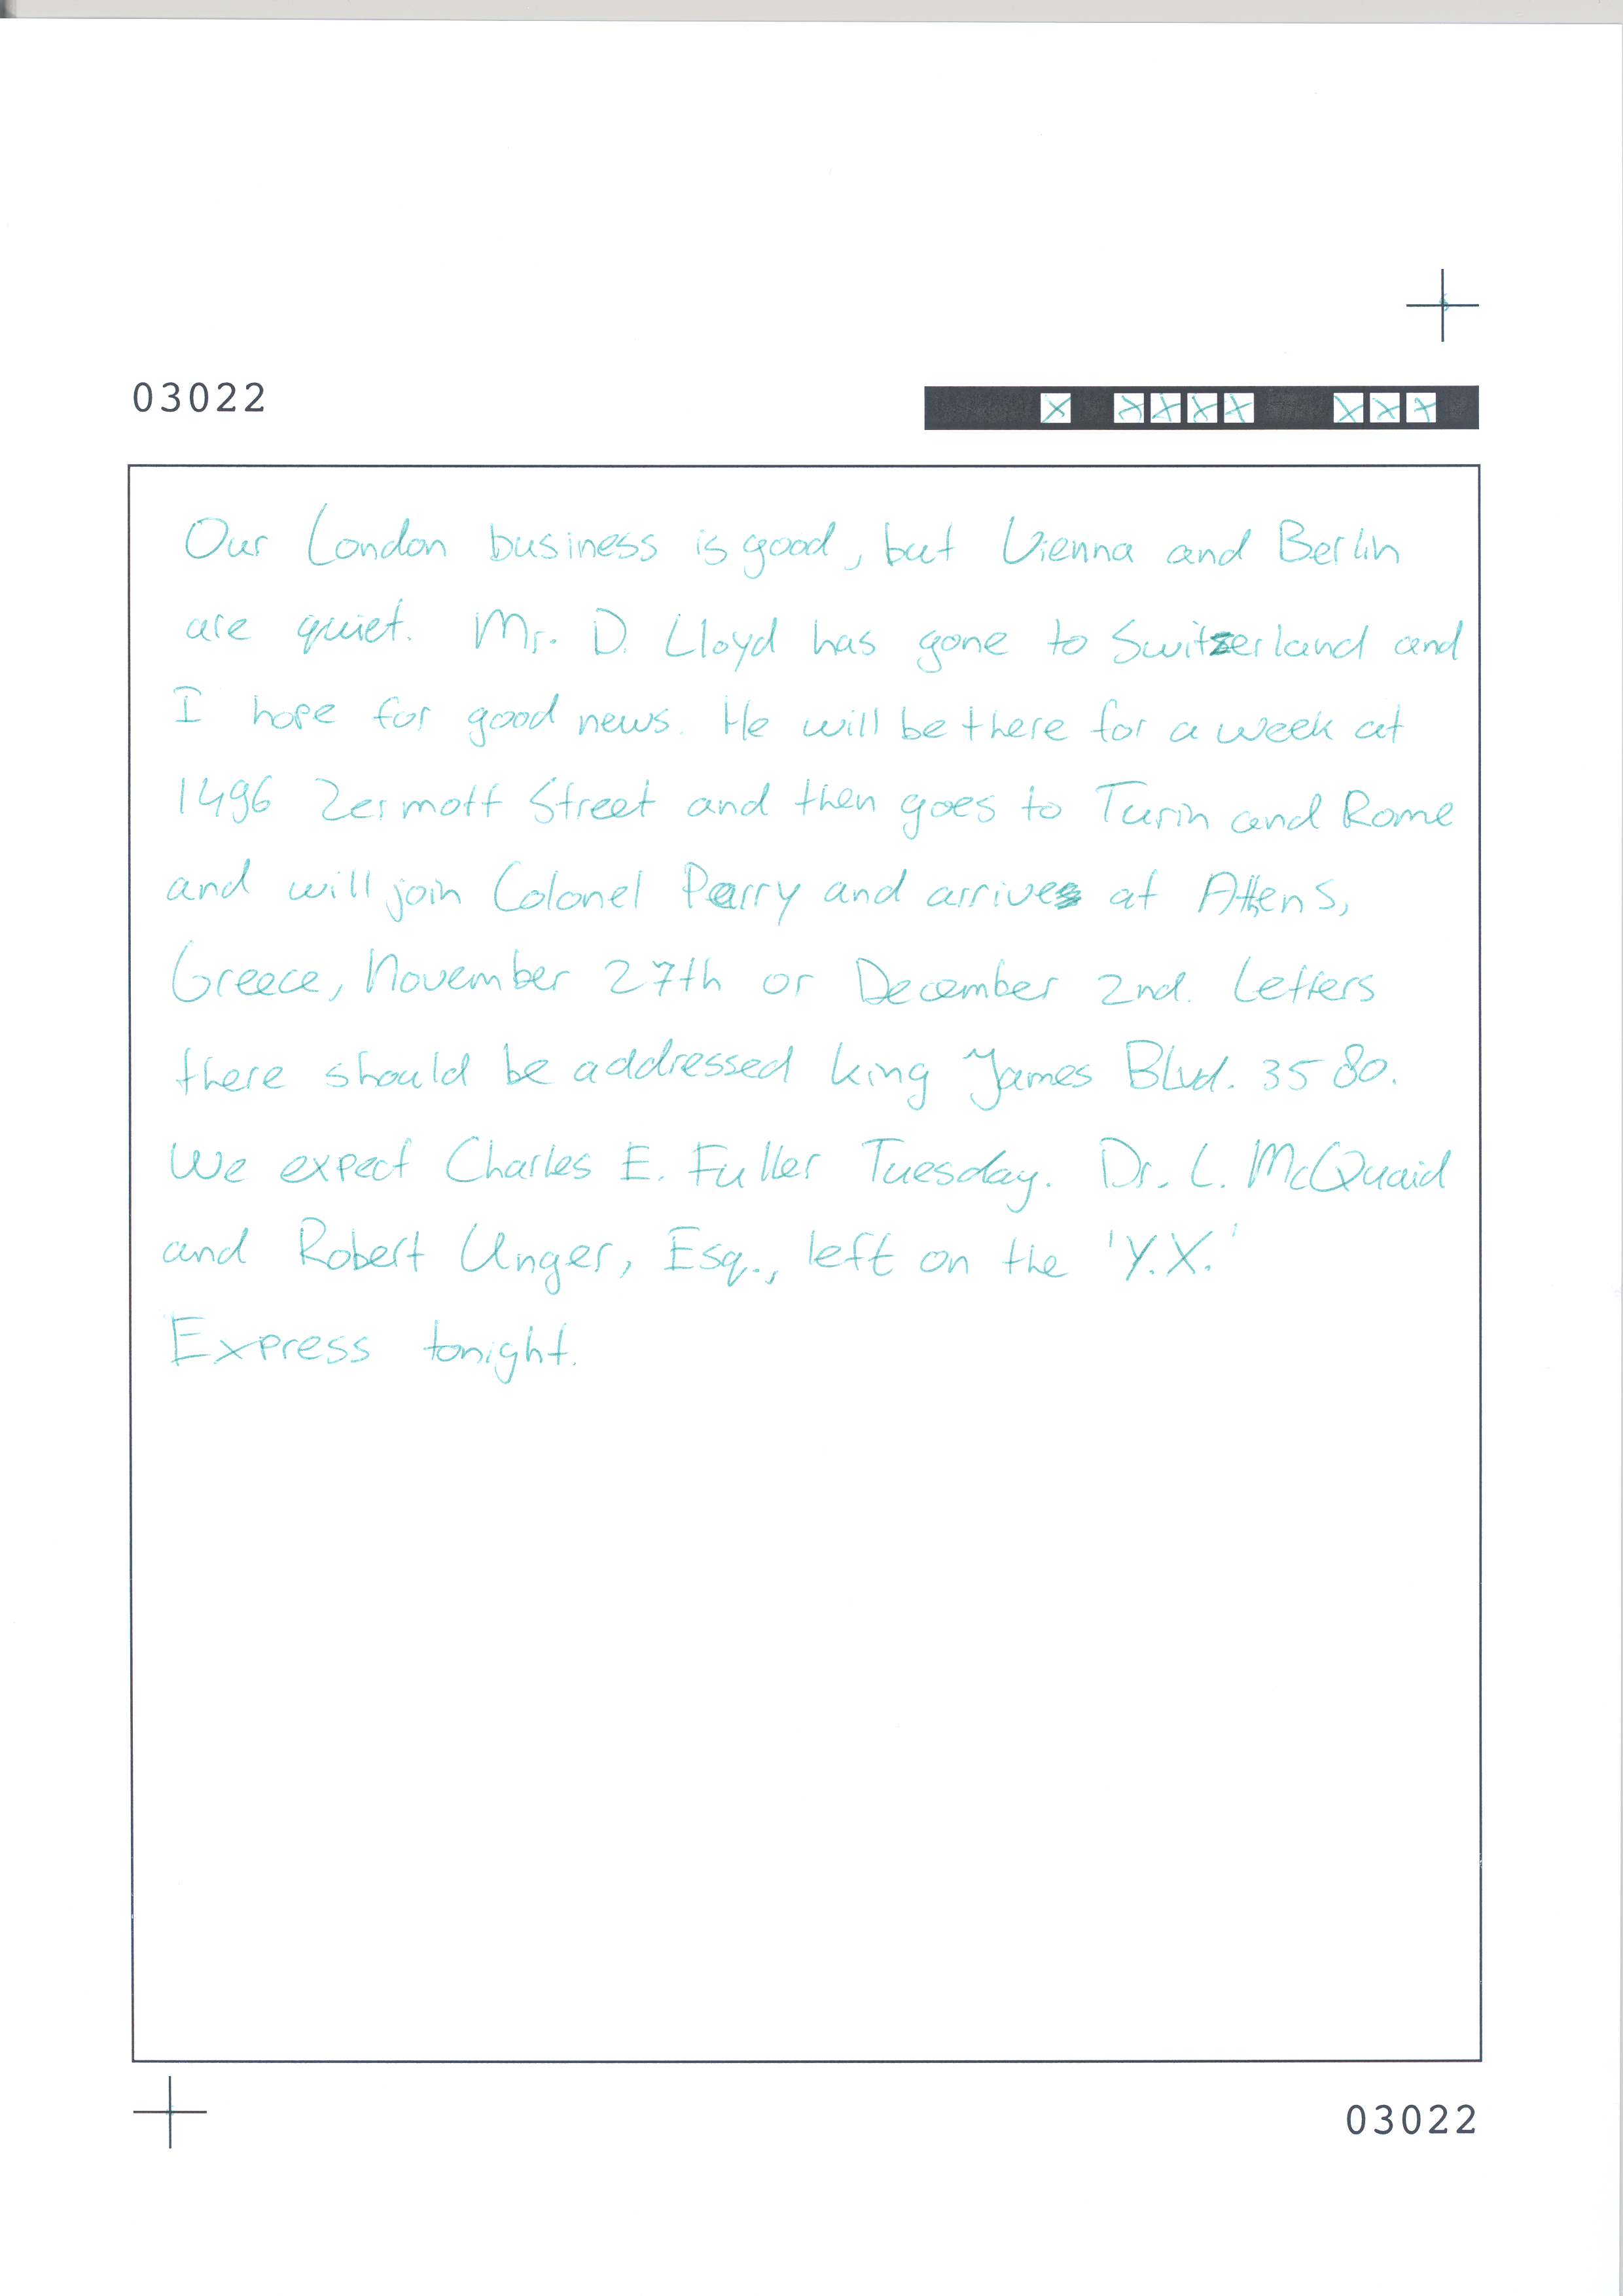 03022
Our London business is good, but Vienna and Berlin
are quiet. Mr. D. Lloyd has gone to Switzerland and
I hope for good news. He will be there for a week at
1496 Zermott Street and then goes to Turin and Rome
and will join Colonel Parry and arrives at Athens,
Greece, November 27th or December 2nd. Letters
there should be addressed King James Blvd. 3580.
We expect Charles E. Fuller Tuesday. Dr. L. McQuaid
and Robert Unger, Esq., left on the 'Y.X.'
Express tonight.
03022